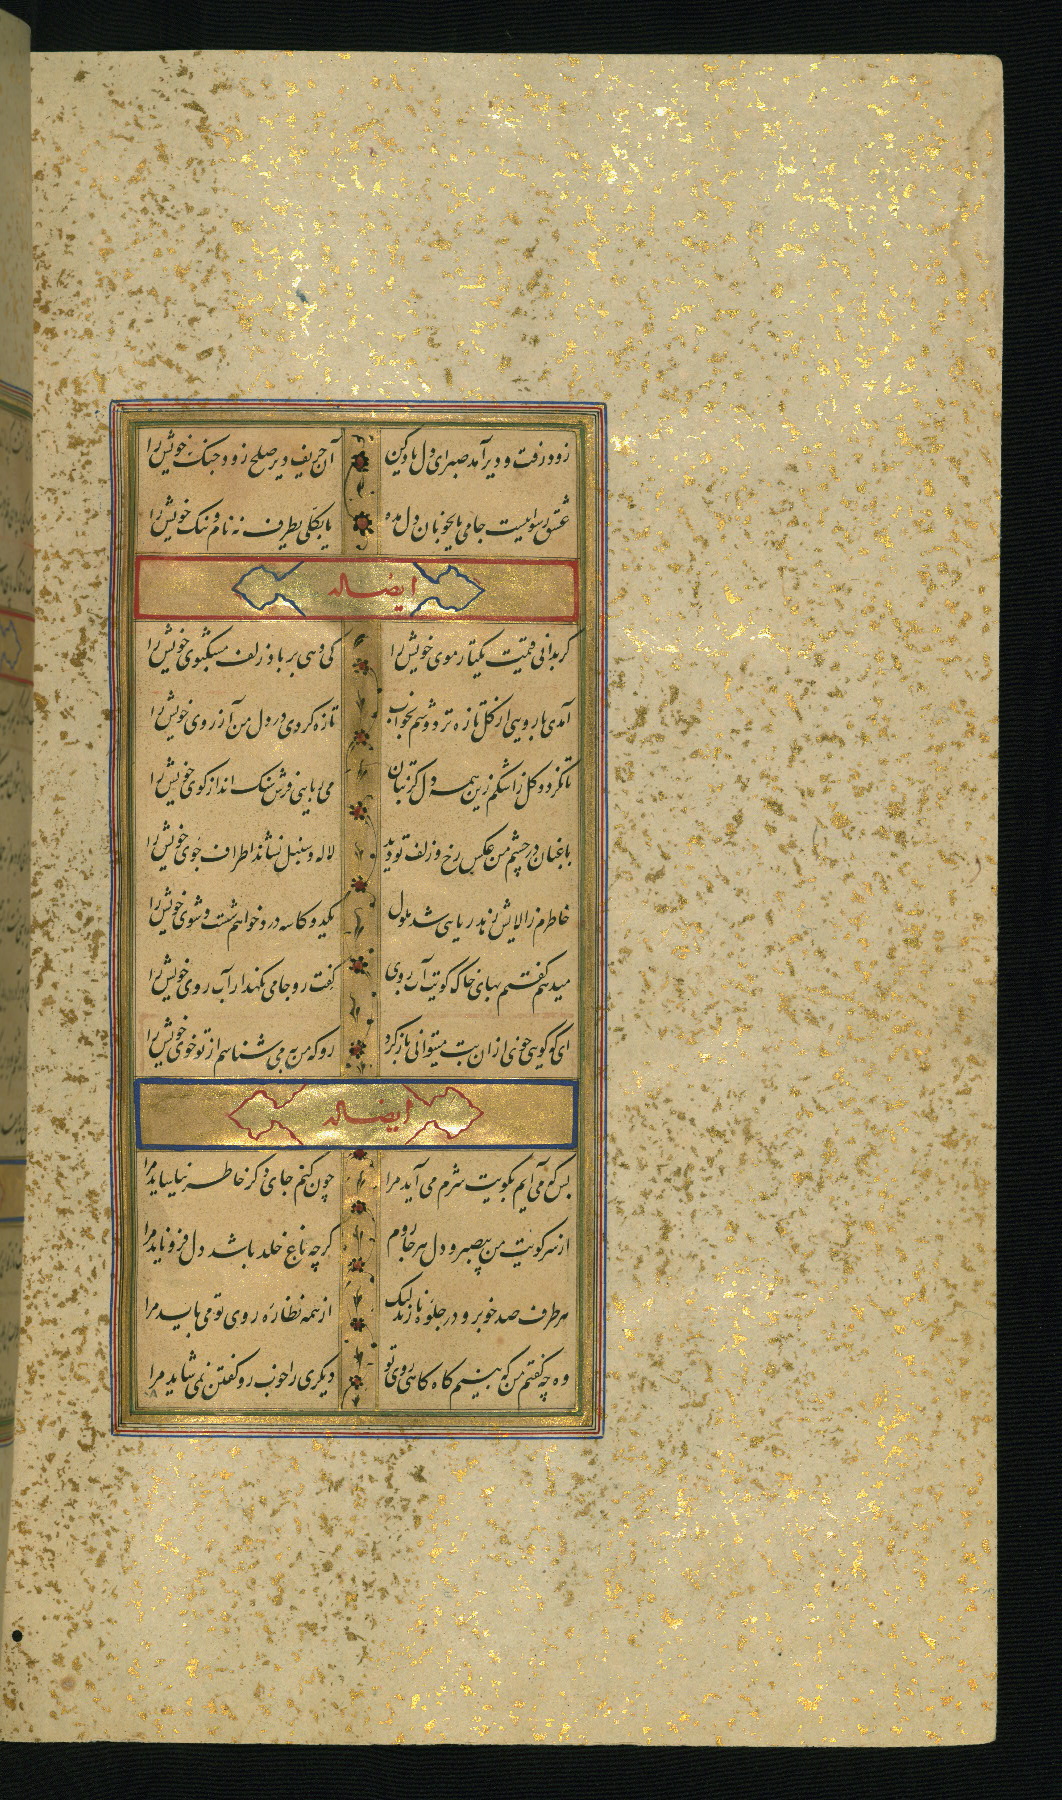 زود رفت و دیر آمد صبر ای دل یاد کن آن حریف دیر صلح زود جنگ خویش را
عشق رسواییست جامی یا بخوبان دل مده یا بکلی یطرف نه نام و ننک خویش را
ایضاله
کر بدانی قیمت یکتار موی خویش را کی دهی بر باد زلف مشکبوی خویش را
آمدی با رویی از کل تازه تر دوشم بخواب تازه کردی در دل من آرزوی خویش را
تا نکردد کل ز اشکم زین همه دل کز بتان می ربایی فرش سنک انداز کوی خویش را
باغبان در چشم من عکس رخ و زلف تو دید لاله و سنبل نشاند اطراف جوی خویش را
خاطرم ز الایش زهد ریایی شد ملول یکدو کاسه درد خواهم شست و شوی خویش را
میدهم کفتم بهای خاک کویت آب روی کفت رو جامی نکهدار آب روی خویش را
ای که کویی خوی از ان بت میتوانی باز کرد رو که من به می شناسم از تو خوی خویش را
ایضاله
بس که می آیم بکویت شرم می آید مرا چون کنم جای دکر خاطر نیاساید مرا
از سر کویت من بیصبر و دل هر جا روم کر چه باغ خلد باشد دل فرو ناید مرا
هر طرف صد خوبرو در جلوه نازند لیک از همه نظاره روی تو می باید مرا
وه چه کفتم من که بینم کاه کاهی روی تو دیکری را خوب رو کفتن نمی شاید مرا